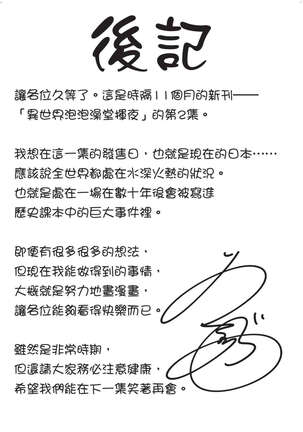 後記
讓各位久等了。這是時隔11個月的新刊——
「異世界泡泡澡堂輝夜」的第2集。
我想在這一集的發售日，也就是現在的日本⋯⋯
應該說全世界都處在水深火熱的狀況。
也就是處在一場在數十年後會被寫進
歷史課本中的巨大事件裡。
即便有很多很多的想法，
但現在我能做得到的事情，
大概就是努力地畫漫畫，
讓各位能夠看得快樂而已。
雖然是非常時期，
但還請大家務必注意健康，
希望我們能在下一集笑著再會。